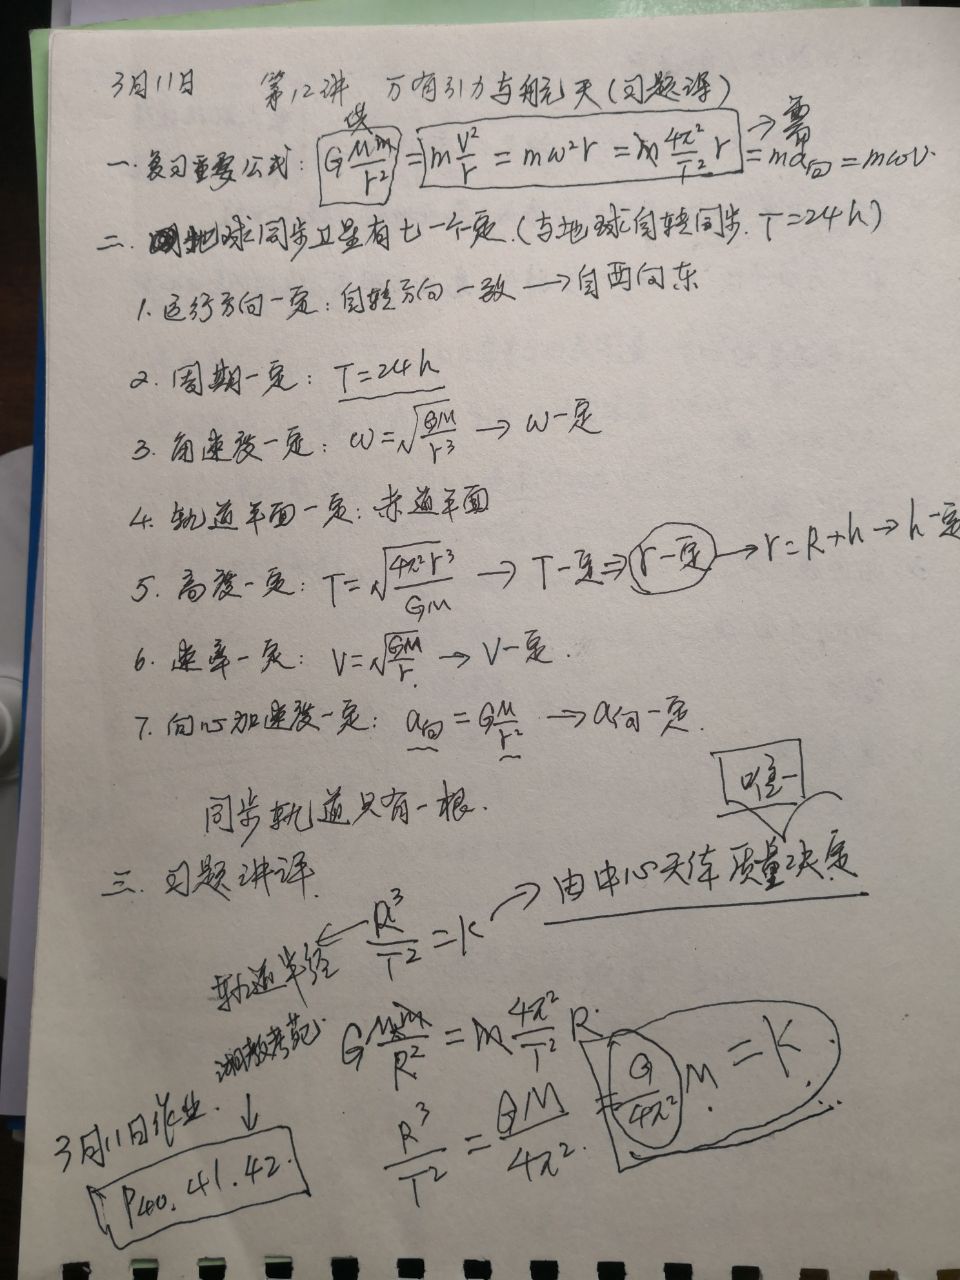 3月11日 第12讲 万有引力与航天(习题课)
供
一.复习重要公式: G Mm/r² = m V²/r = mω²r = m 4π²/T² r = ma向 = mωv.
→需
二.地球同步卫星有七一个定.(与地球自转同步. T=24h)
1.运行方向一定:自转方向一致→自西向东
2.周期一定: T=24h
3.角速度一定: ω=√(GM/r³) → ω一定
4.轨道平面一定:赤道平面
5.高度一定: T=√(4π²r³/GM) → T一定⇒r一定→r=R+h→h一定
6.速率一定: V=√(GM/r) → V一定.
7.向心加速度一定: a向 = G M/r² → a向一定.
唯一
同步轨道只有一根.
三.习题讲评.
R³/T² = K → 由中心天体质量决定
轨道半径
G Mm/R² = m 4π²/T² R
3月11日作业.
R³/T² = GM/4π² = G/4π² M = K
P40.41.42.